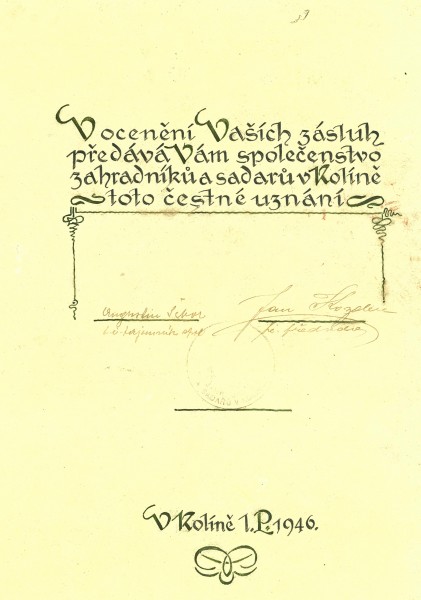 V ocenění Vašich zásluh
předává Vám společenstvo
zahradníků a sadařů v Kolíně
toto čestné uznání
Augustin Jan
t. č. tajemník
t. č. předseda
V Kolíně 1. P. 1946.